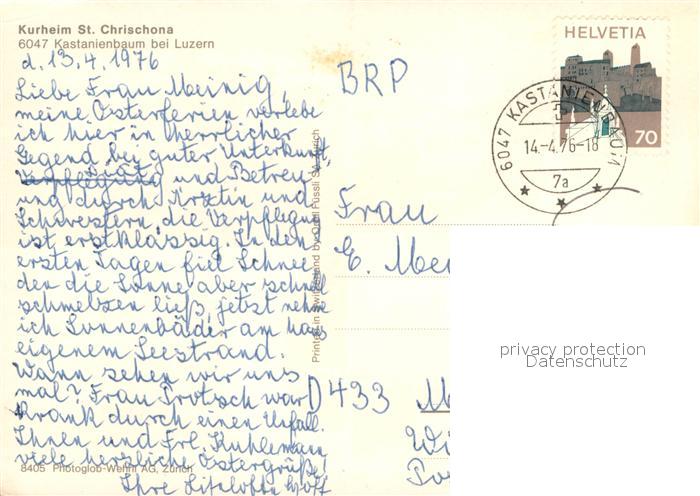 Kurheim St. Chrischona
6047 Kastanienbaum bei Luzern
d. 13.4.1976
Liebe Frau Meinig,
meine Osterferien verlebe
ich hier in herrlicher
Gegend bei guter Unterkunft,
Diät
Verpflegung und Betreu-
ung durch Ärztin und
Schwestern, die Verpflegung
ist erstklassig. In den
ersten Tagen fiel Schnee
den die Sonne aber schnell
schmelzen ließ, jetzt nehme
ich Sonnenbäder am haus
eigenem Seestrand.
Wann sehen wir uns
mal? Frau Protsch war
krank durch einen Unfall.
Ihnen und Frl. Kuhlemann
viele herzliche Ostergrüße!
Ihre Liselotte
8405 Photoglob-Wehrli AG, Zürich
Printed in Switzerland by Orell Füssli
BRP
HELVETIA
70
6047 KASTANIENBAUM
14.-4.76-18
7a
Frau
E. Mei
D 433 M
privacy protection
Datenschutz